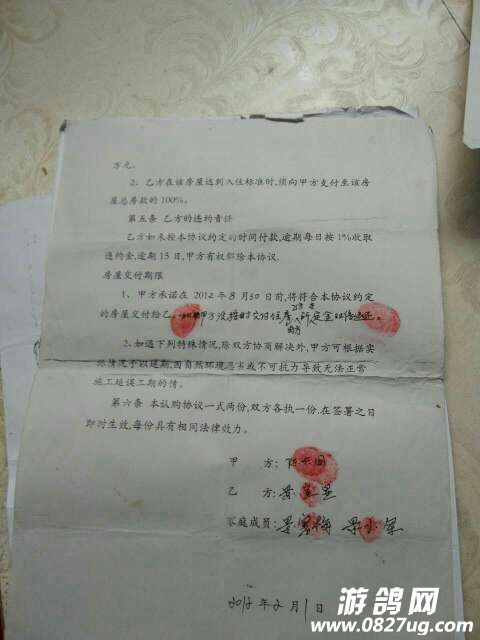 万元。
2、乙方在该房屋达到入住标准时,须向甲方支付至该房
屋总房款的100%。
第五条 乙方的违约责任
乙方如未按本协议约定的时间付款,逾期每日按1%收取
违约金,逾期15日,甲方有权解除本协议。
房屋交付期限
1、甲方承诺在2012年8月30日前,将符合本协议约定
的房屋交付给乙 甲方没按时交付住房 所定金双倍退还。
2、如遇下列特殊情况,除双方协商解决外,甲方可根据实
际情况予以延期,因自然环境恶劣或不可抗力导致无法正常
施工延误工期的情。
第六条 本认购协议一式两份,双方各执一份,在签署之日
即时生效,每份具有相同法律效力。
甲 方:
乙 方:
家庭成员:
2012年2月1日
游鸽网
www.0827ug.com